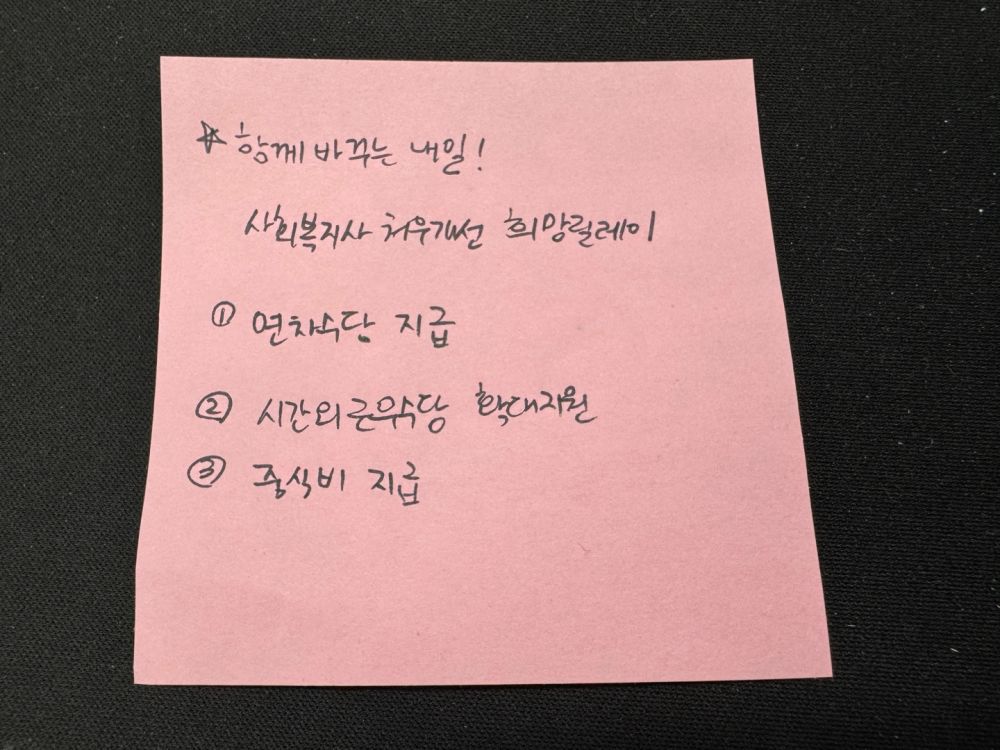 ☆ 함께 바꾸는 내일!
사회복지사 처우개선 희망릴레이
① 연차수당 지급
② 시간외근무수당 확대지원
③ 중식비 지급